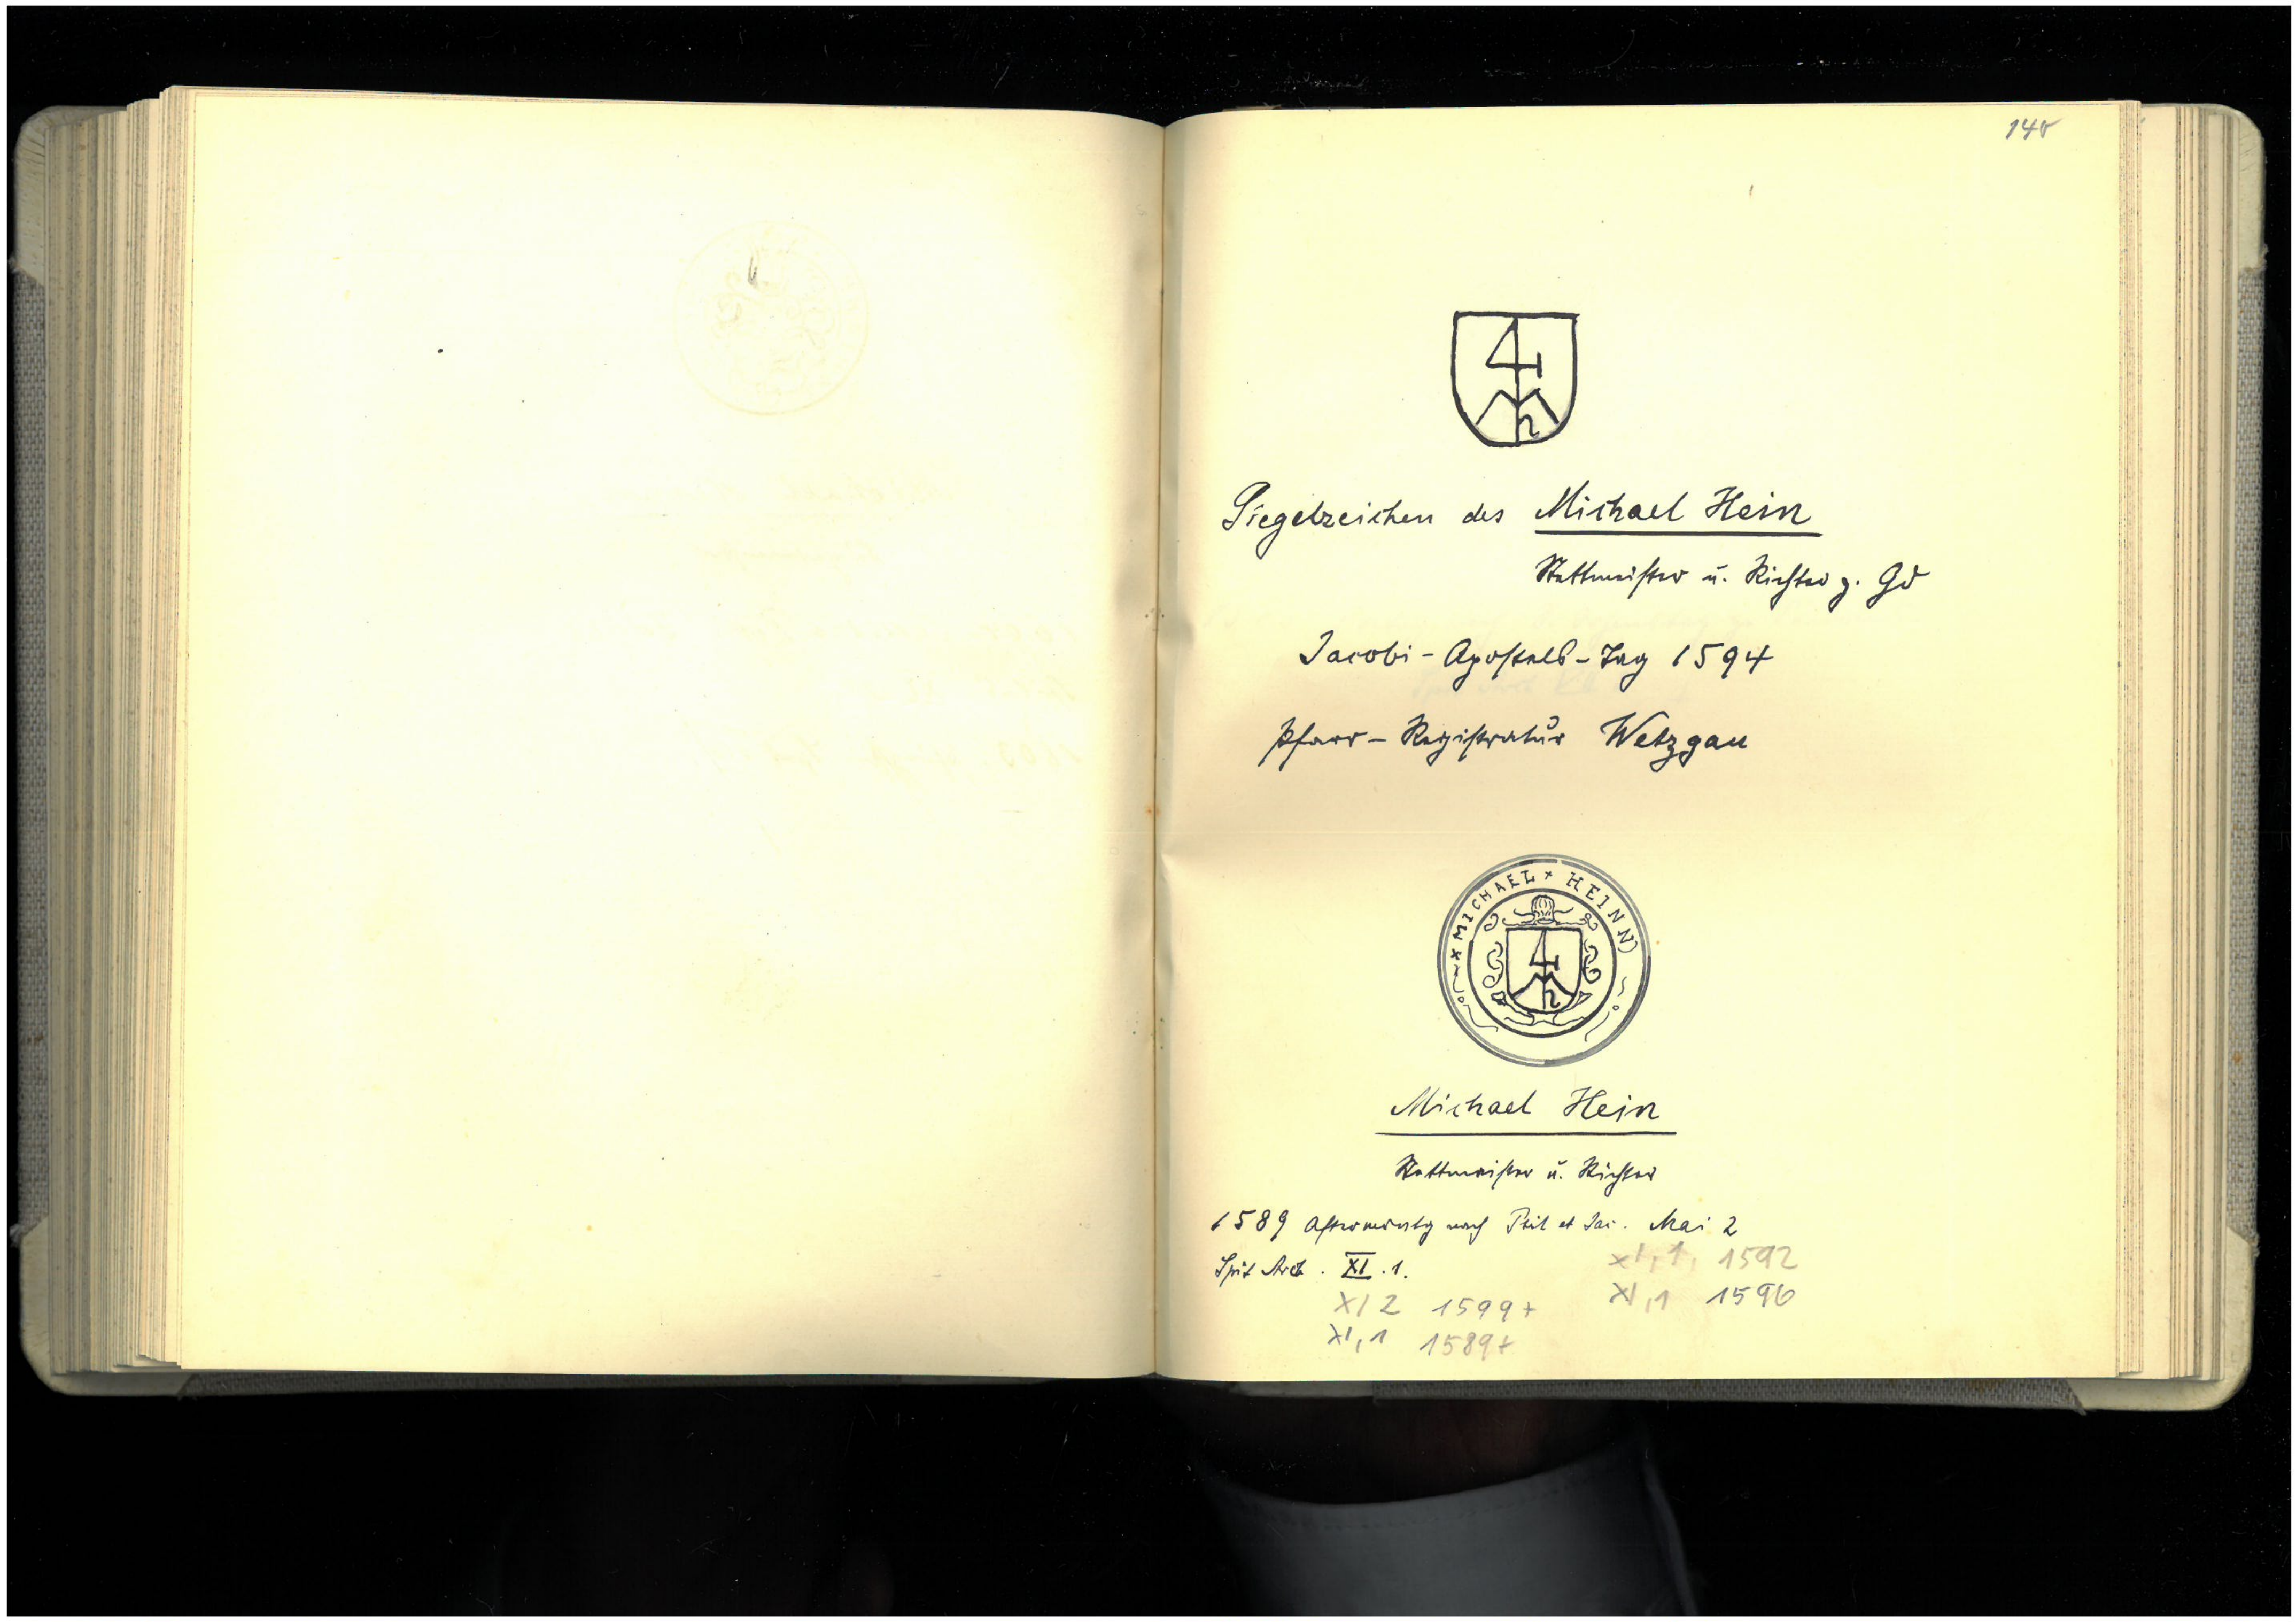 140
Siegelzeichen des Michael Hein
Stettmeister u. Richter z. Gd
Jacobi-Apostels-Tag 1594
Pfarr-Registratur Wetzgau
× MICHAEL × HEINN
Michael Hein
Stettmeister u. Richter
1589 Aftermontg nach Phil et Jac. Mai 2
Spit Arch. XI.1.
XI,1, 1592
XI 2 1599+
XI,1 1596
XI,1 1589+